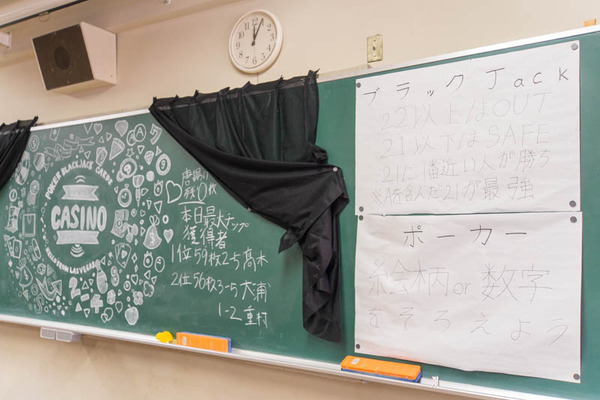 POKER BLACKJACK CARD
CASINO
HELLO FROM LAS VEGAS
残り0枚
本日最大チップ
獲得者
1位 59枚 2-5 高木
2位 56枚 3-5 大浦
1-2 重村
ブラックJack
22以上はOUT
21以下はSAFE
21に1番近い人が勝ち
※Aを含んだ21が最強
ポーカー
絵柄or数字
をそろえよう